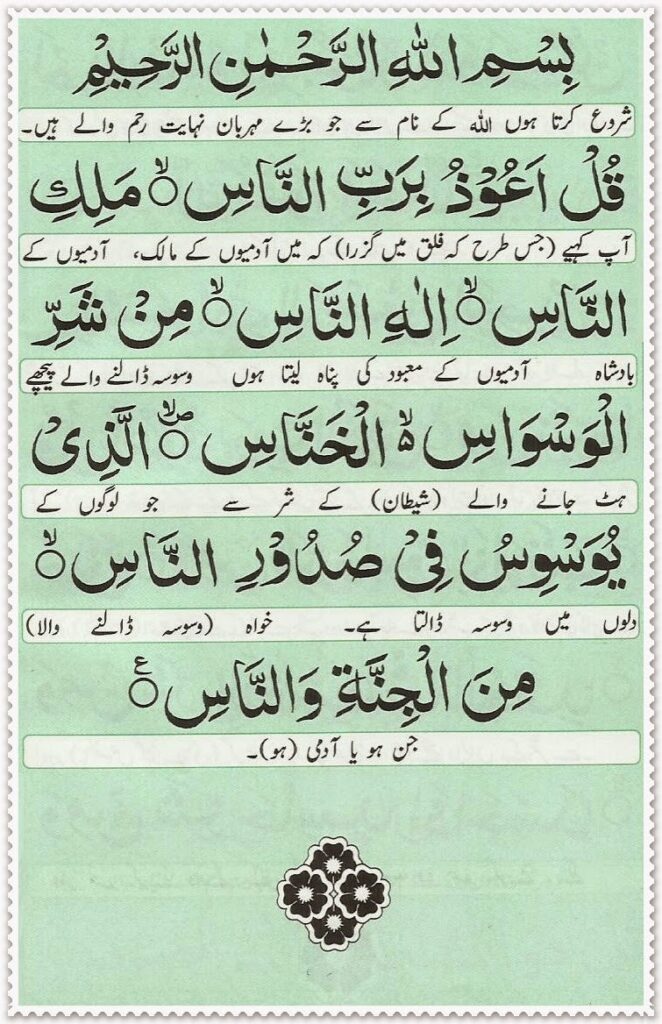 بِسْمِ اللهِ الرَّحْمٰنِ الرَّحِيْمِ
شروع کرتا ہوں اللہ کے نام سے جو بڑے مہربان نہایت رحم والے ہیں۔
قُلْ اَعُوْذُ بِرَبِّ النَّاسِ ۙ مَلِكِ
آپ کہیے (جس طرح کہ فلق میں گزرا) کہ میں آدمیوں کے مالک، آدمیوں کے
النَّاسِ ۙ اِلٰهِ النَّاسِ ۙ مِنْ شَرِّ
بادشاہ آدمیوں کے معبود کی پناہ لیتا ہوں وسوسہ ڈالنے والے پیچھے
الْوَسْوَاسِ ۙ الْخَنَّاسِ ۪ۙ الَّذِىْ
ہٹ جانے والے (شیطان) کے شر سے جو لوگوں کے
يُوَسْوِسُ فِىْ صُدُوْرِ النَّاسِ ۙ
دلوں میں وسوسہ ڈالتا ہے۔ خواہ (وسوسہ ڈالنے والا)
مِنَ الْجِنَّةِ وَالنَّاسِ ع
جن ہو یا آدمی (ہو)۔